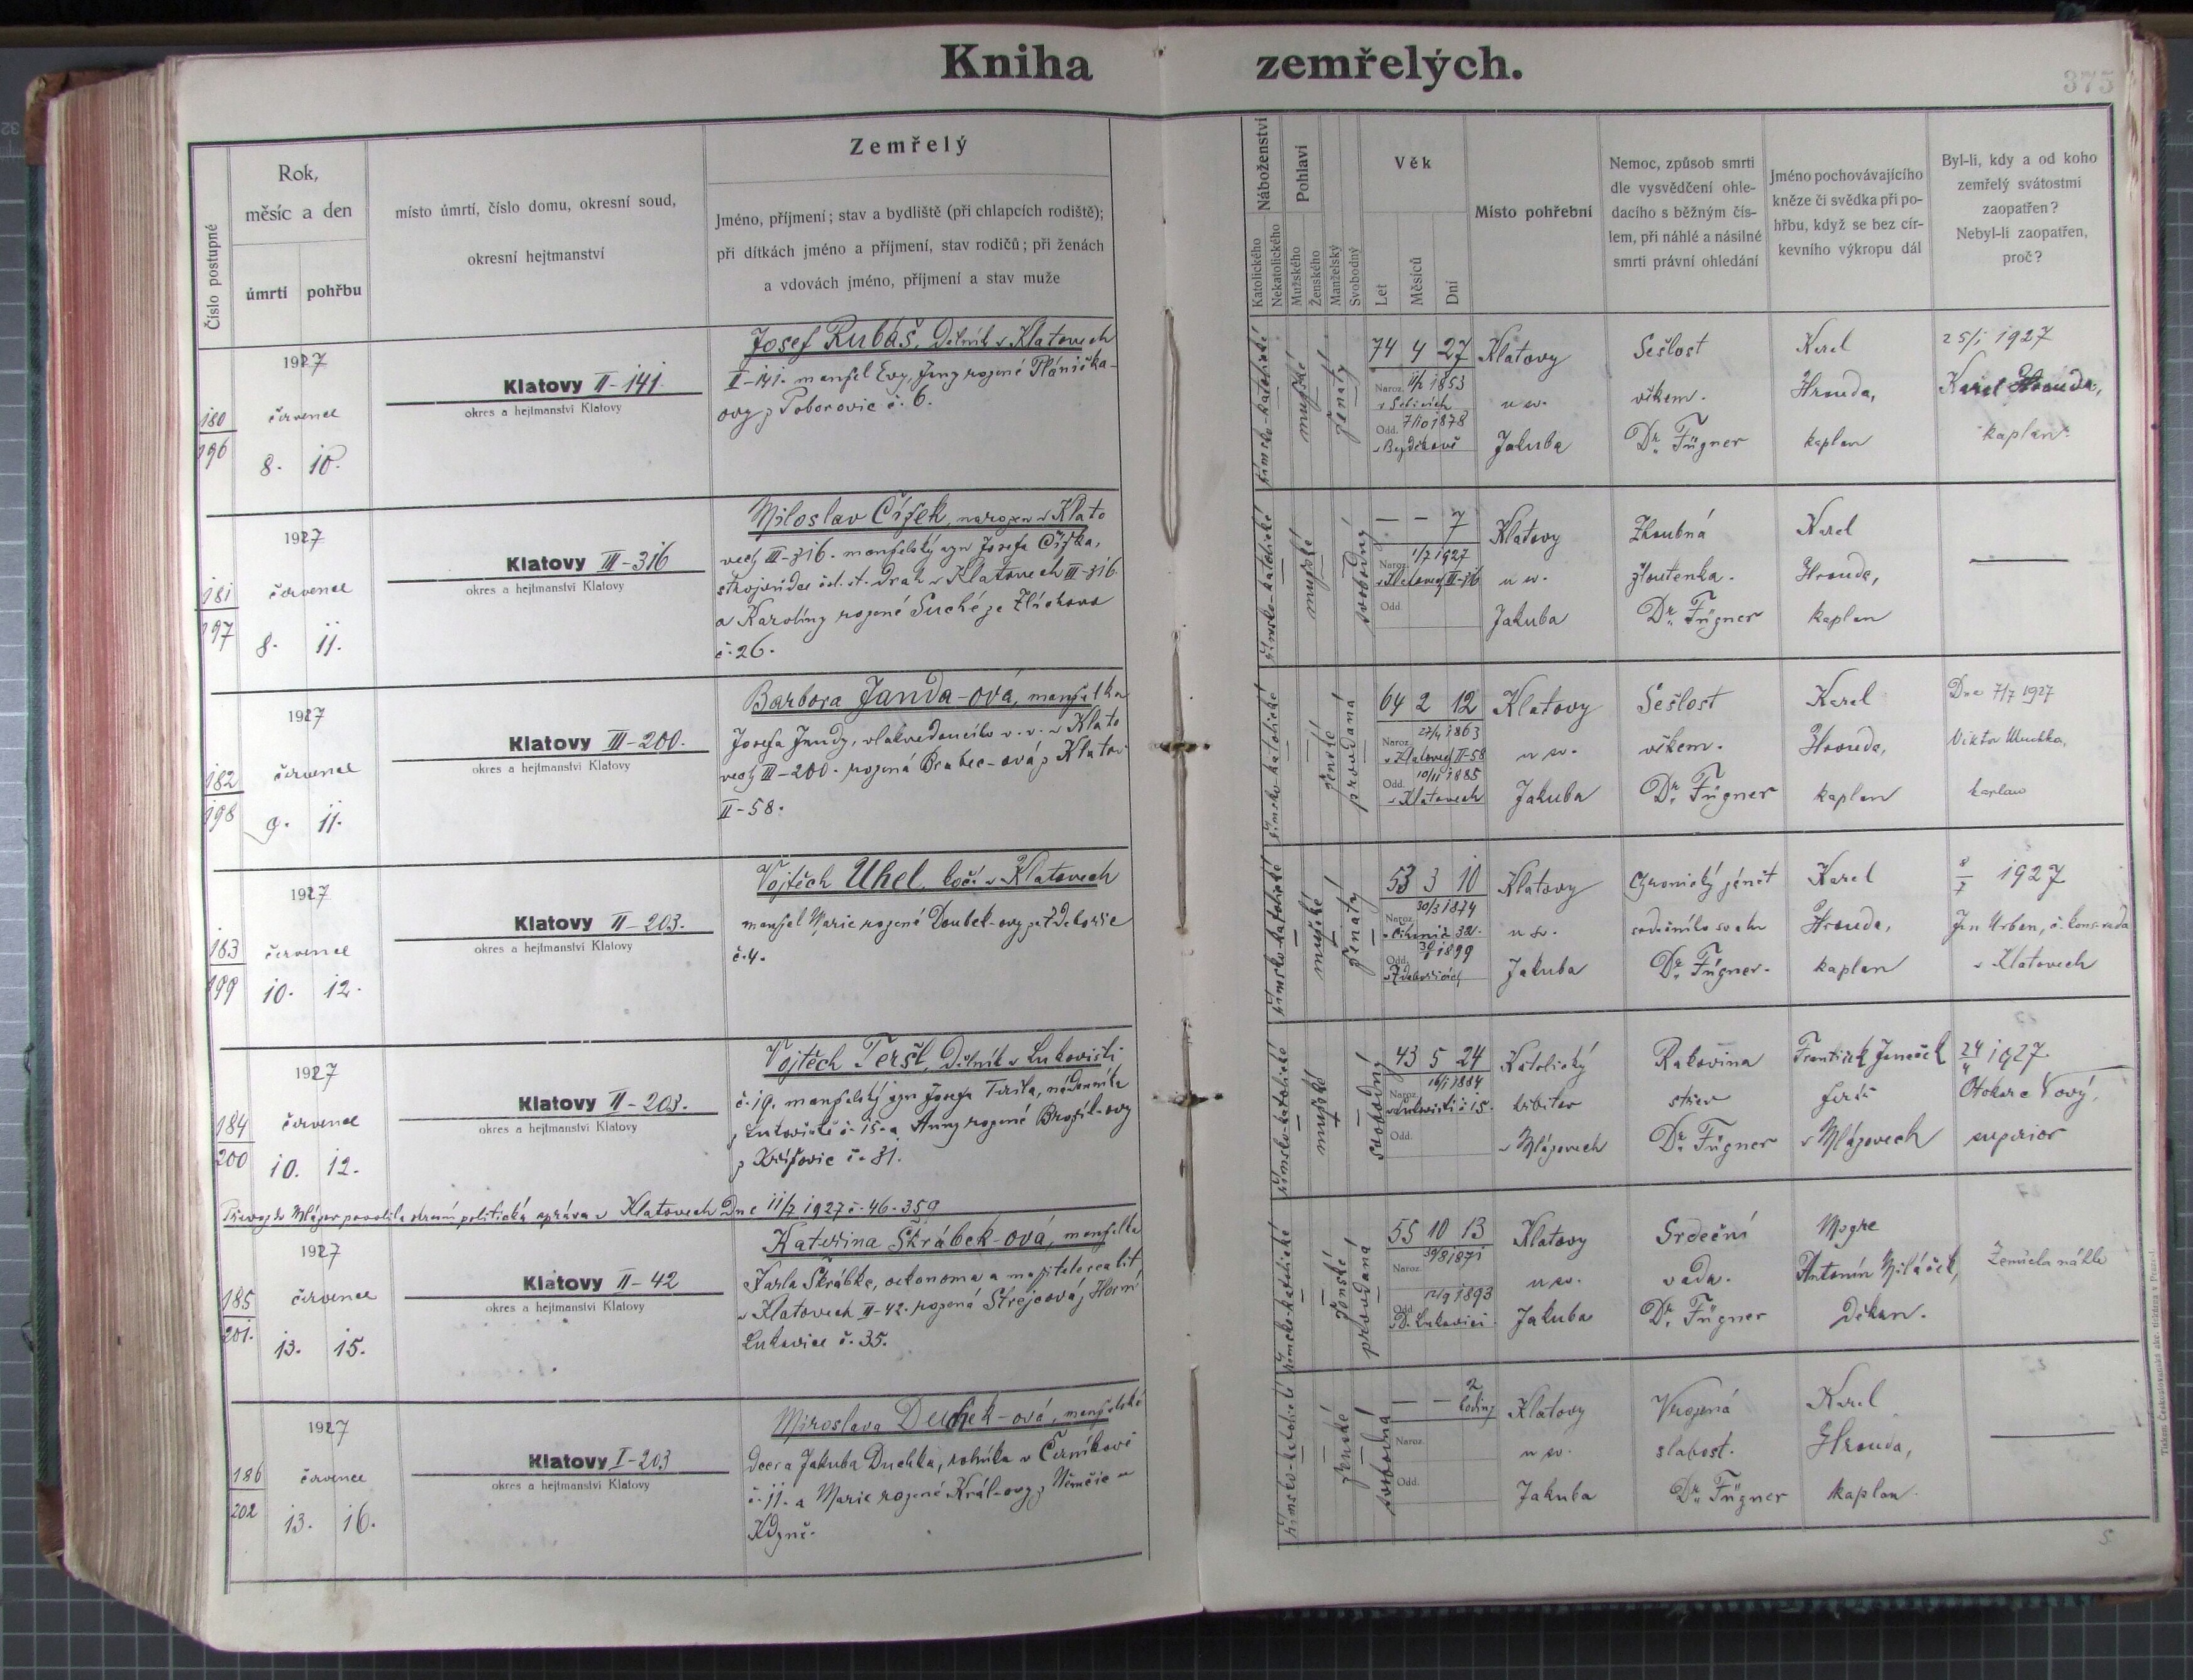 Kniha zemřelých.
375
Číslo postupné
Rok,
měsíc a den
úmrtí pohřbu
místo úmrtí, číslo domu, okresní soud,
okresní hejtmanství
Zemřelý
Jméno, příjmení; stav a bydliště (při chlapcích rodiště);
při dítkách jméno a příjmení, stav rodičů; při ženách
a vdovách jméno, příjmení a stav muže
Náboženství
Katolického
Nekatolického
Pohlaví
Mužského
Ženského
Manželský
Svobodný
Věk
Let
Měsíců
Dní
Místo pohřební
Nemoc, způsob smrti
dle vysvědčení ohle-
dacího s běžným čís-
lem, při náhlé a násilné
smrti právní ohledání
Jméno pochovávajícího
kněze či svědka při po-
hřbu, když se bez cír-
kevního výkropu dál
Byl-li, kdy a od koho
zemřelý svátostmi
zaopatřen?
Nebyl-li zaopatřen,
proč?
180
196
1927
července
8. 10.
Klatovy II-141.
okres a hejtmanství Klatovy
Josef Rubáš, dělník v Klatovech
II-141. manžel Evy, Anny rozené Plánička-
ovy z Poborovic č. 6.
římsko-katolické
mužské
ženatý
74 4 27
Naroz. 11/2 1853
Odd. 7/10 1878
v Bezděkově
Klatovy
u sv.
Jakuba
Sešlost
věkem.
Dr. Fügner
Karel
Hrouda,
kaplan
25/1 1927
Karel Hrouda,
kaplan.
181
197
1927
července
8. 11.
Klatovy III-316
okres a hejtmanství Klatovy
Miloslav Čížek, narozen v Klato
vech III-316. manželský syn Josefa Čížka,
strojvůdce čsl. st. drah v Klatovech III-316
a Karolíny rozené Suché ze Zlíchova
č. 26.
římsko-katolické
mužské
svobodný
— — 7
Naroz. 1/7 1927
v Klatovech III-316
Odd.
Klatovy
u sv.
Jakuba
Zhoubná
žloutenka.
Dr. Fügner
Karel
Hrouda,
kaplan
182
198
1927
července
9. 11.
Klatovy III-200.
okres a hejtmanství Klatovy
Barbora Janda-ová, manželka
Josefa Jandy, vlakvedoucího v. v. v Klato
vech III-200. rozená Brabec-ová z Klatov
II-58.
římsko-katolické
ženské
provdaná
64 2 12
Naroz. 27/4 1863
v Klatovech II-58
Odd. 10/11 1885
v Klatovech
Klatovy
u sv.
Jakuba
Sešlost
věkem.
Dr. Fügner
Karel
Hrouda,
kaplan
Dne 7/7 1927
Viktor Muchka,
kaplan
183
199
1927
července
10. 12.
Klatovy II-203.
okres a hejtmanství Klatovy
Vojtěch Uhel, kočí v Klatovech
manžel Marie rozené Doubek-ovy ze Zdebořic
č. 4.
římsko-katolické
mužské
ženatý
53 3 10
Naroz. 30/3 1874
Odd. 1899
Klatovy
u sv.
Jakuba
Chronický zánět
srdečního svalu
Dr. Fügner.
Karel
Hrouda,
kaplan
8/7 1927
Jan Urban, b. kons. rada
v Klatovech
184
200
1927
července
10. 12.
Klatovy II-203.
okres a hejtmanství Klatovy
Vojtěch Teršl, dělník v Lukovišti
č. 19. manželský syn Josefa Teršla, nádeníka
z Lukoviště č. 15. a Anny rozené Brožík-ovy
č. 31.
římsko-katolické
mužské
svobodný
43 5 24
Naroz. 16/1 1884
v Lukovišti č. 15.
Odd.
Katolický
hřbitov
v Mlázovech
Rakovina
střev
Dr. Fügner
František Janeček
farář
v Mlázovech
1927.
Otokar Nový,
superior
Převoz do Mlázov povolila okresní politická správa v Klatovech dne 11/7 1927 č. 46.359
185
201.
1927
července
13. 15.
Klatovy II-42
okres a hejtmanství Klatovy
Kateřina Škrábek-ová, manželka
Karla Škrábka, oekonoma a majitele realit
v Klatovech II-42. rozená Strejcová z Horní
Lukavice č. 35.
římsko-katolické
ženské
provdaná
55 10 13
Naroz. 30/8 1871
Odd. 12/9 1893
Klatovy
u sv.
Jakuba
Srdeční
vada.
Dr. Fügner
Msgre
Antonín Miláček,
děkan.
Zemřela náhle
186
202
1927
července
13. 16.
Klatovy I-203
okres a hejtmanství Klatovy
Miroslava Duchek-ová, manželská
dcera Jakuba Duchka, rolníka v Černíkově
č. 11. a Marie rozené Král-ovy z Němčic u
Kdyně.
římsko-katolické
ženské
svobodná
— — 2
hodiny
Naroz.
Odd.
Klatovy
u sv.
Jakuba
Vrozená
slabost.
Dr. Fügner
Karel
Hrouda,
kaplan
Tiskem Českoslovanské akc. tiskárny v Praze.